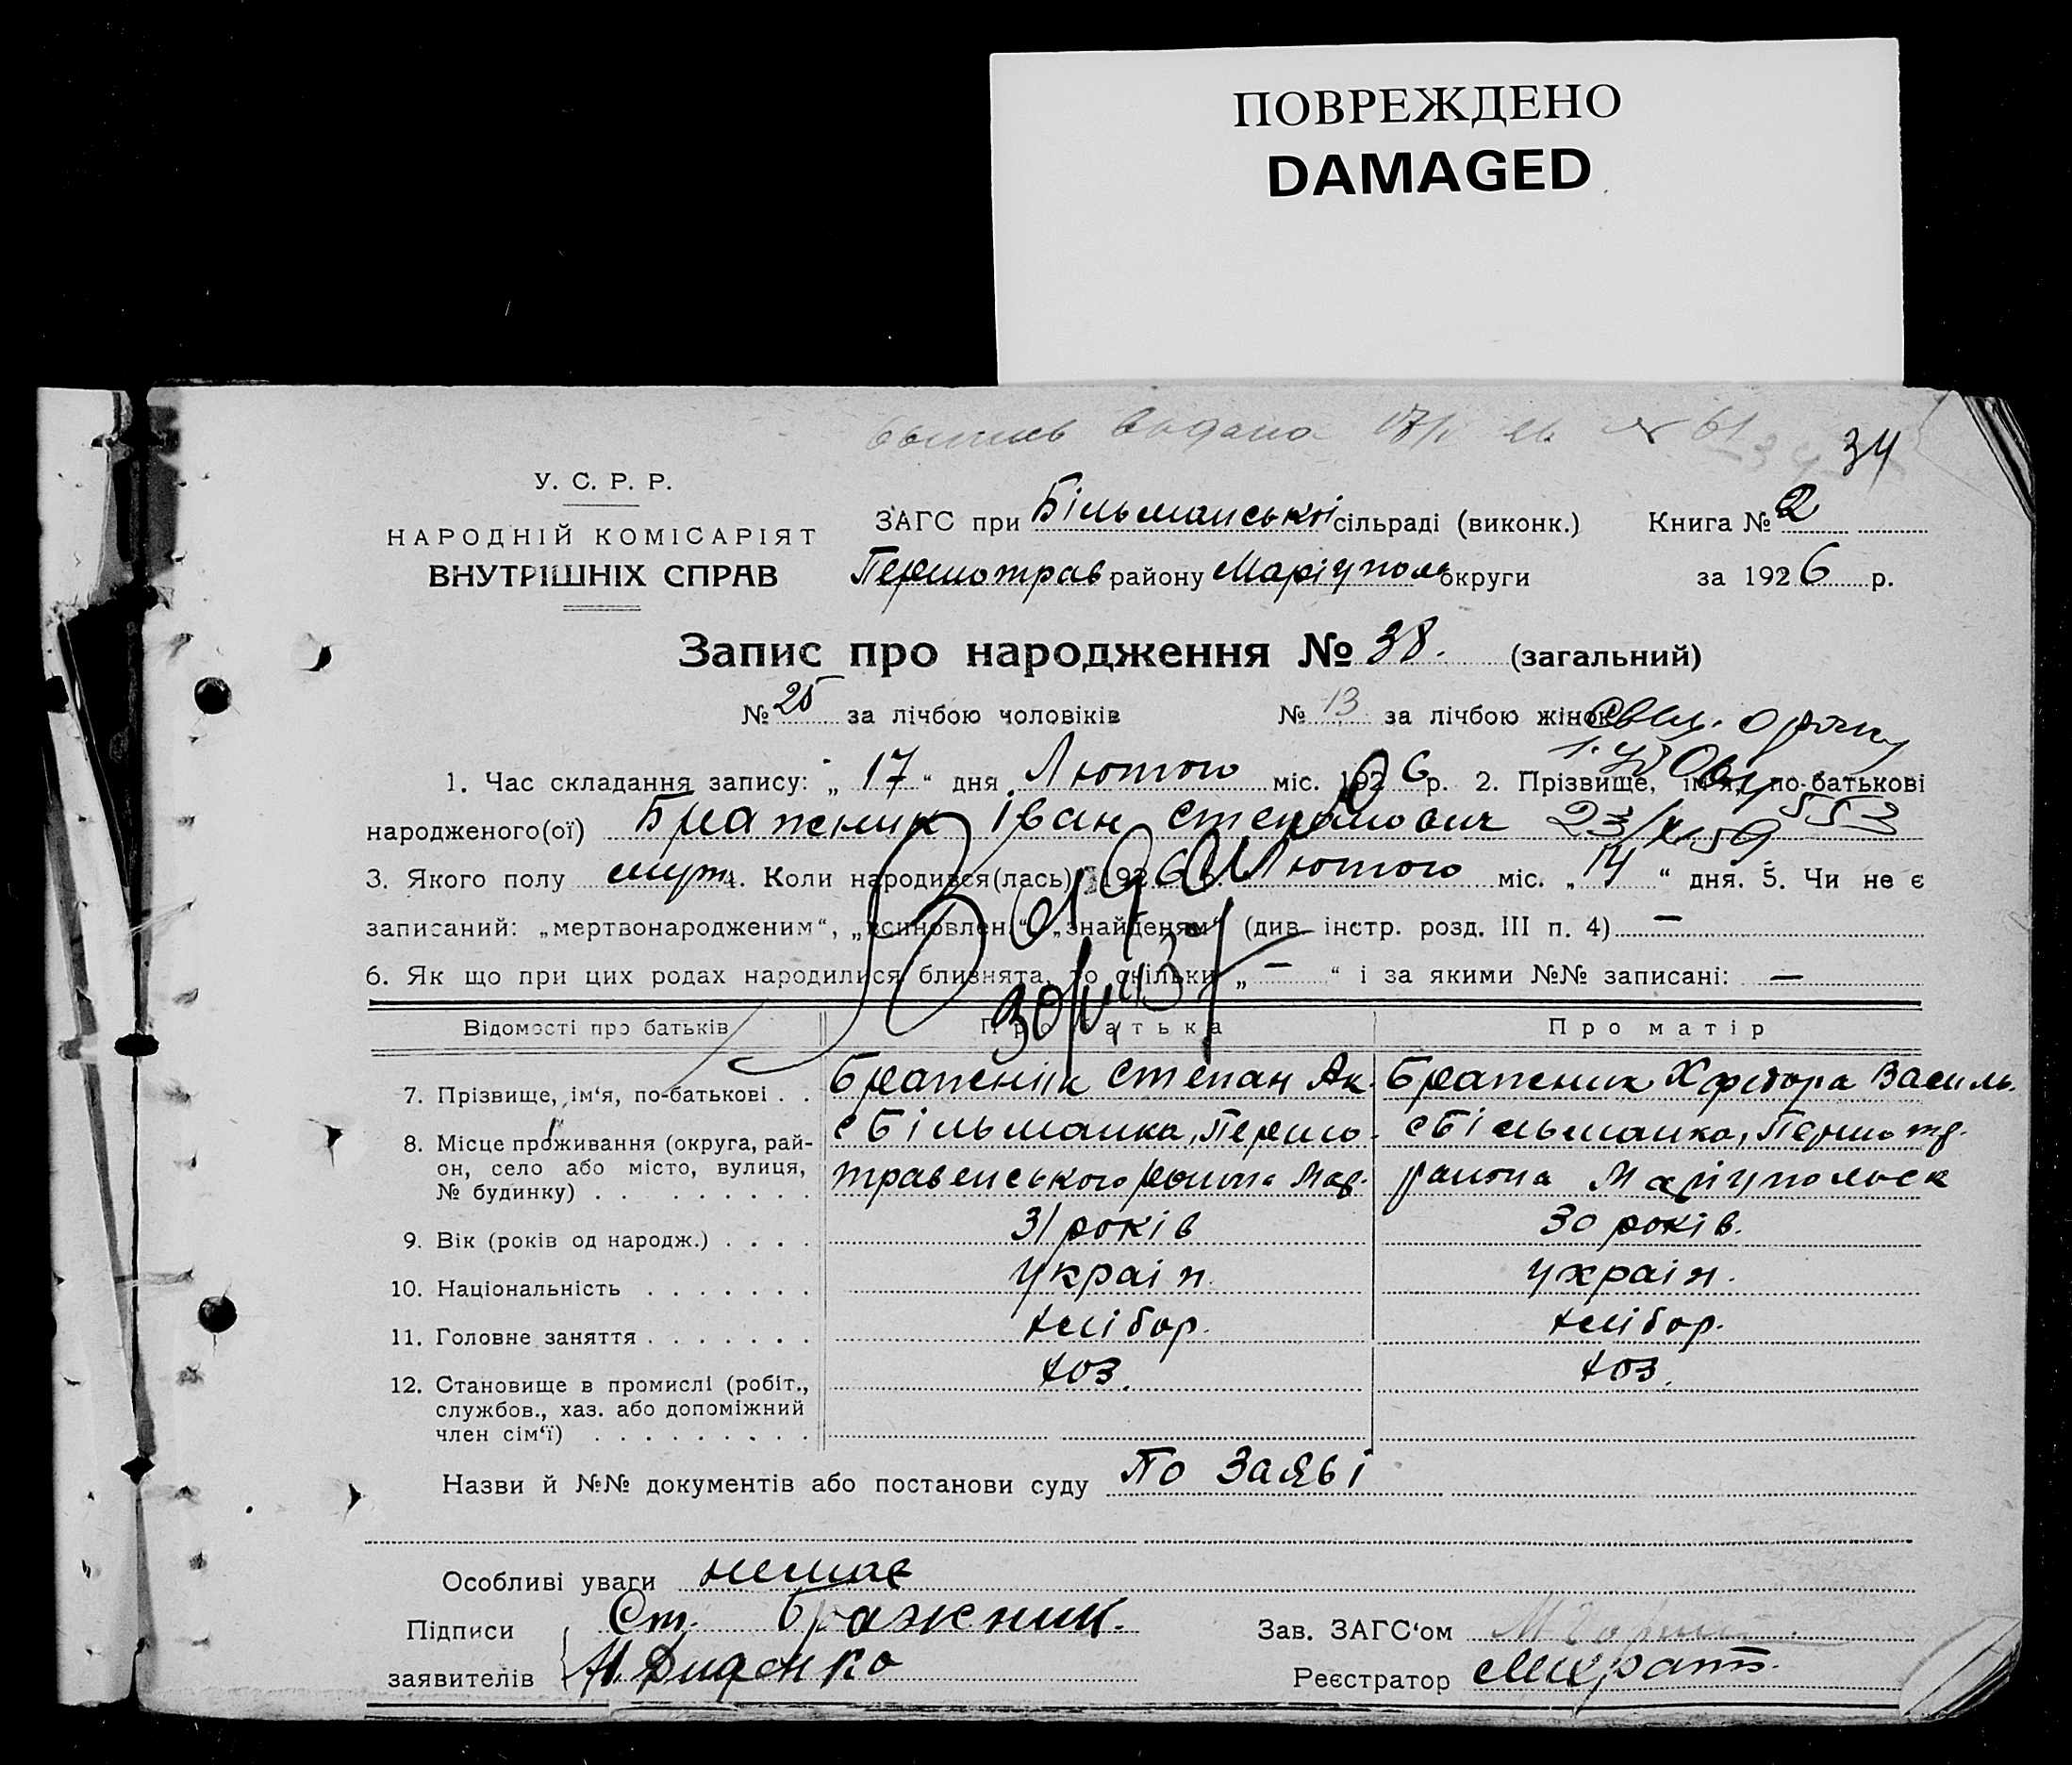 ПОВРЕЖДЕНО
DAMAGED
34
У. С. Р. Р.
НАРОДНІЙ КОМІСАРІЯТ
ВНУТРІШНІХ СПРАВ
ЗАГС при Більманській сільраді (виконк.) Книга № 2
Першотрав району Маріуполь округи за 1926 р.
Запис про народження № 38. (загальний)
№ 25 за лічбою чоловіків № 13 за лічбою жінок
1. Час складання запису: „17“ дня Лютого міс. 1926 р. 2. Прізвище, ім'я, по-батькові
народженого(ої) Бражник Іван Степанович 23/X 59
3. Якого полу муж. 4. Коли народився(лась) 1926 р. Лютого міс. „14“ дня. 5. Чи не є
записаний: „мертвонародженим“, „всиновлен.“ „знайденям“ (див. інстр. розд. III п. 4) —
6. Як що при цих родах народилися близнята, то скільки „—“ і за якими №№ записані: —
Відомості про батьків Про батька Про матір
7. Прізвище, ім'я, по-батькові . . Бражник Степан Ак. Бражник Василь.
8. Місце проживання (округа, рай- с Більманка, Першо- с Більманка, Першотр.
он, село або місто, вулиця, травенського района Мар. района Маріупольск
№ будинку) . . . . . . . . .
9. Вік (років од народж.) . . . . 31 років 30 років.
10. Національність . . . . . . . україн. україн.
11. Головне заняття . . . . . . . хлібор. хлібор.
12. Становище в промислі (робіт., хоз. хоз.
службов., хаз. або допоміжний
член сім'ї) . . . . . . . . .
Назви й №№ документів або постанови суду По Заяві
Особливі уваги немає
Підписи Ст. Бражник. Зав. ЗАГС'ом
заявителів Диденко Реєстратор